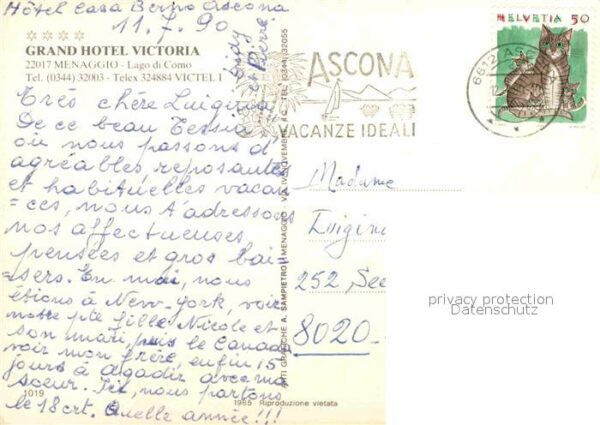 Hôtel Casa Berno Ascona
11.7.90
GRAND HOTEL VICTORIA
22017 MENAGGIO - Lago di Como
Tel. (0344) 32003 - Telex 324884 VICTEL I
Très chère Luigina
De ce beau Tessin
où nous passons d'
agréables reposantes
et habituelles vacan
=ces, nous t'adressons
nos affectueuses
pensées et gros bai
=sers. En mai, nous
étions à New-York, voir
notre pte fille Nicole et
son mari, puis le Canada
voir mon frère, enfin 15
jours à Agadir avec ma
soeur. Ici, nous partons
le 18 crt. Quelle année!!!
et Pierre
1019
1985 Riproduzione vietata
ARTI GRAFICHE A. SAMPIETRO - MENAGGIO - VIA IV NOVEMBRE (0344) 32055
ASCONA
VACANZE IDEALI
6612 ASCONA
HELVETIA 50
Madame
Luigina
252, See
8020
privacy protection
Datenschutz